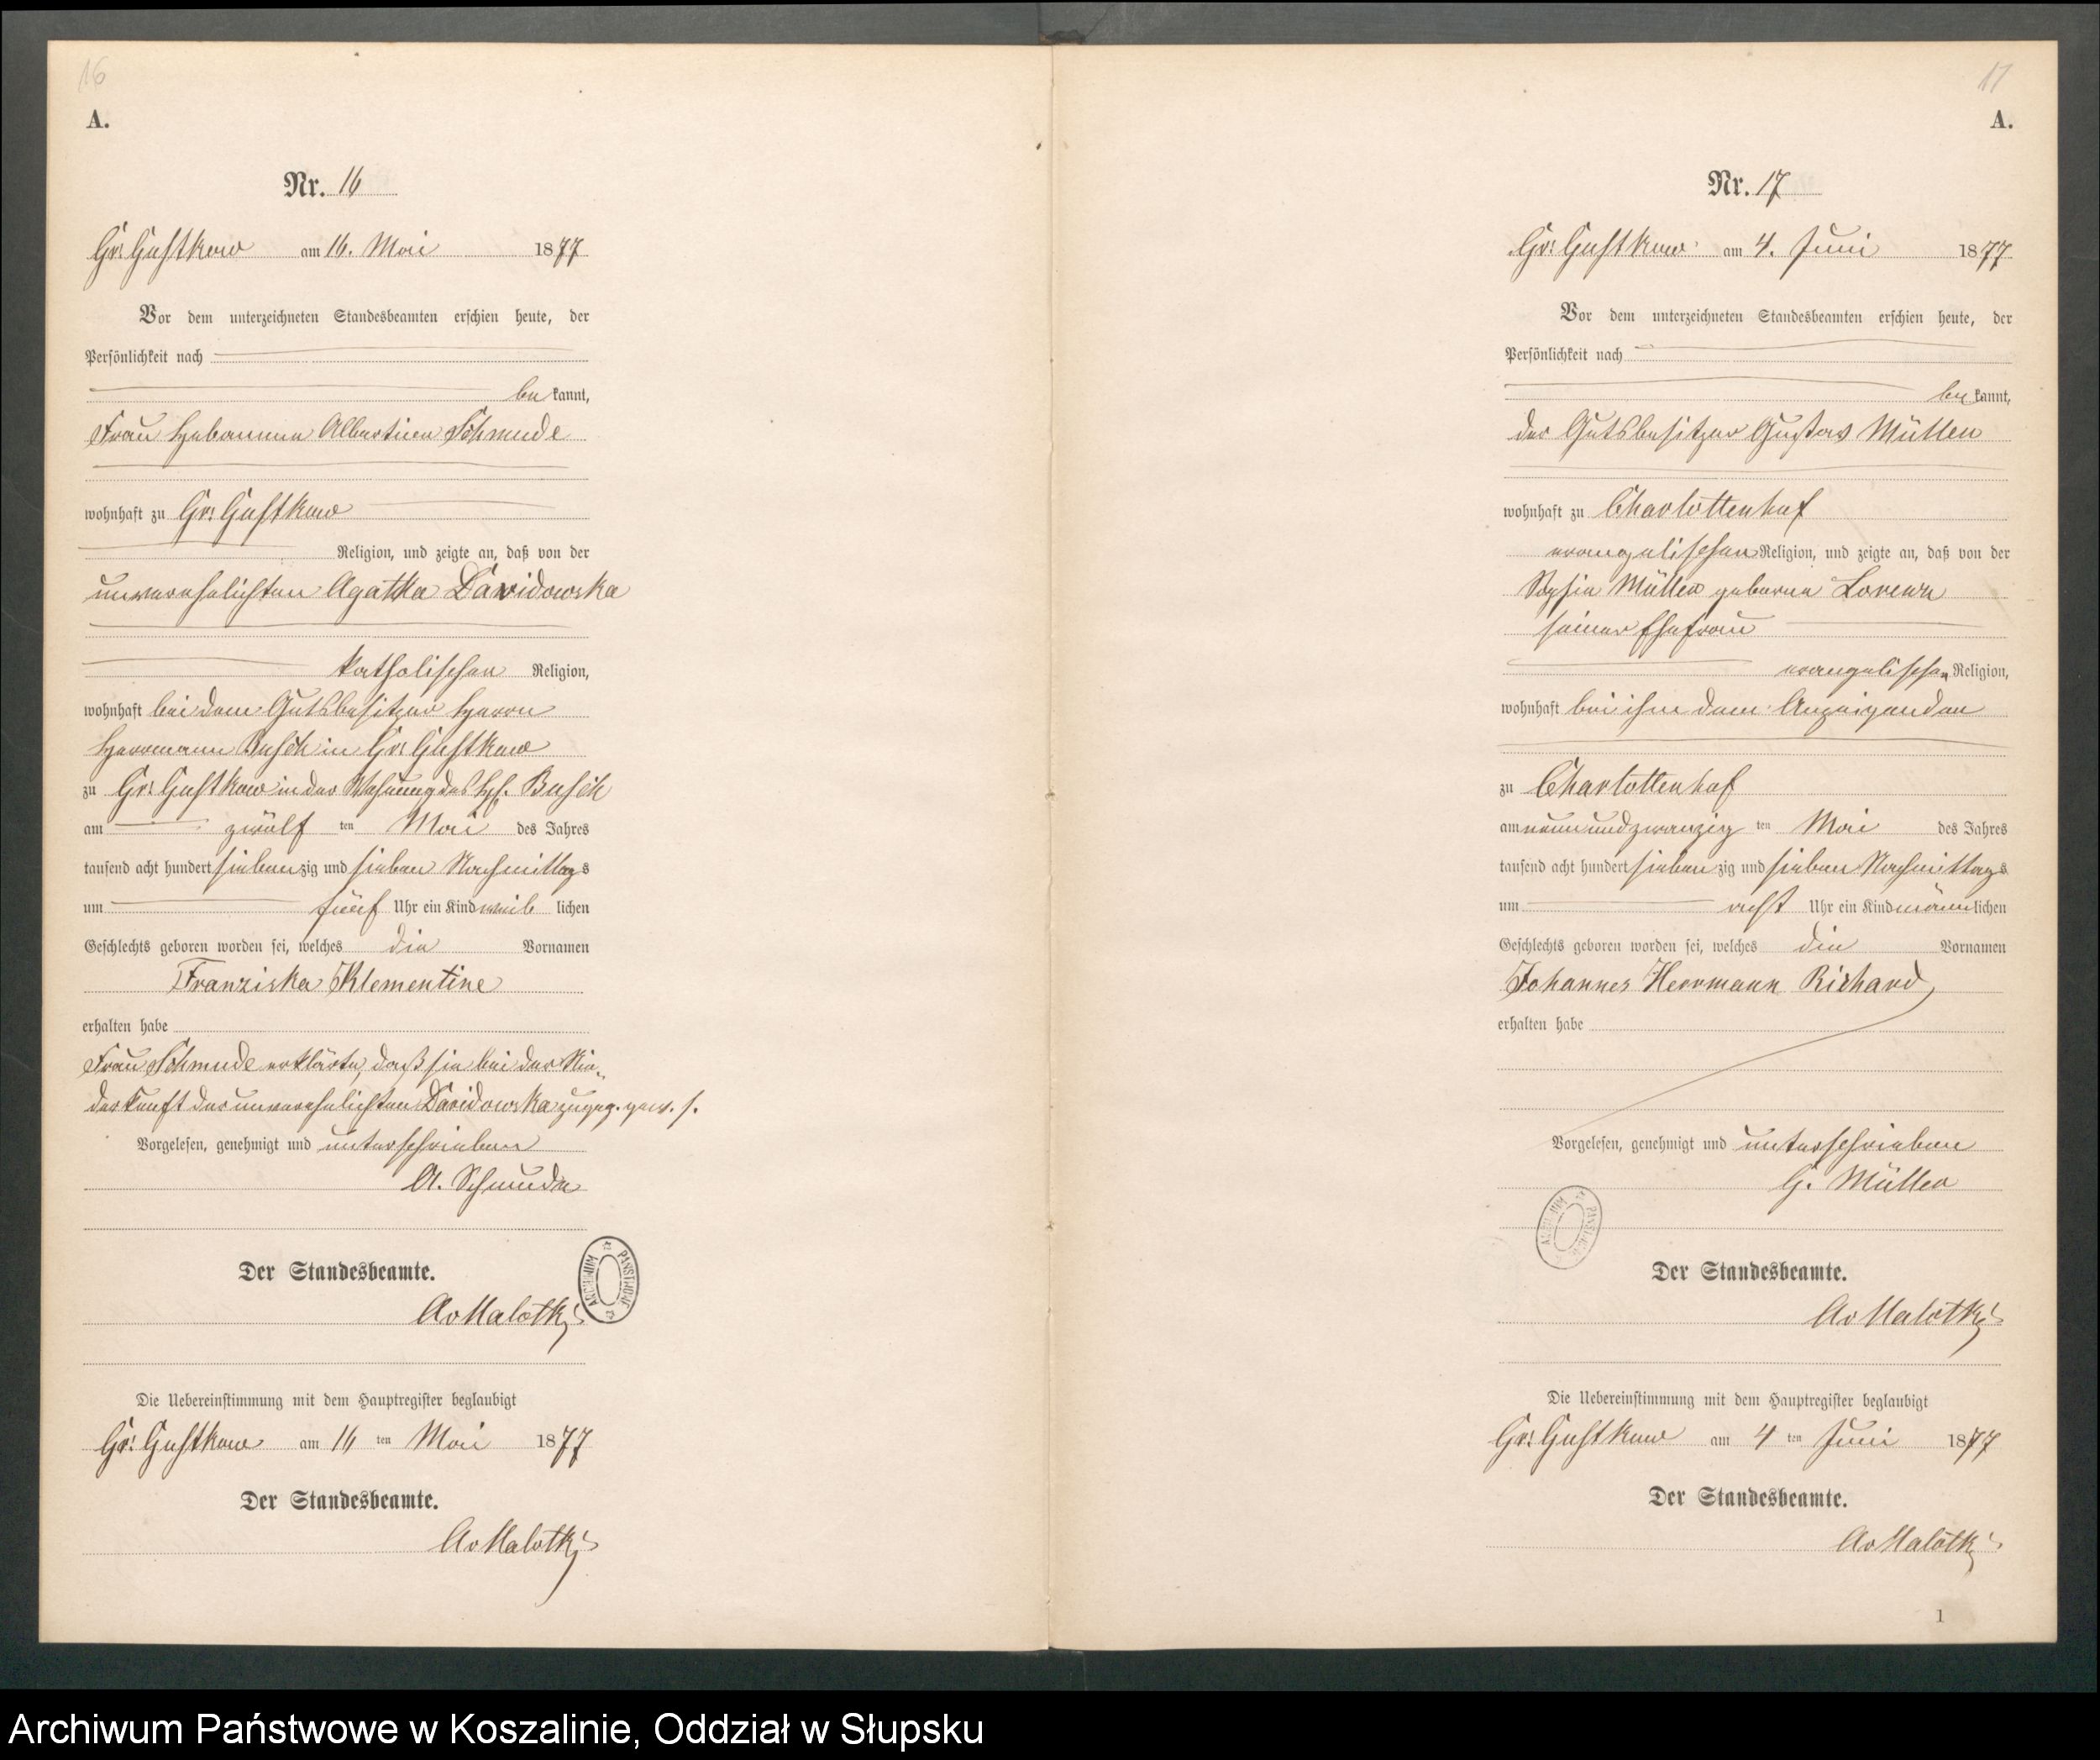 16
A.
Nr. 16
Gr: Gustkow am 16. Mai 1877
Vor dem unterzeichneten Standesbeamten erschien heute, der
Persönlichkeit nach
be kannt,
Frau Hebamme Albertine Schmude
wohnhaft zu Gr: Gustkow
Religion, und zeigte an, daß von der
unverehelichten Agatha Davidowska
katholischen Religion,
wohnhaft bei dem Gutsbesitzer Herrn
Herrmann Busch in Gr: Gustkow
zu Gr: Gustkow in der Wohnung des Busch
am zwölf ten Mai des Jahres
tausend acht hundert sieben zig und sieben Nachmittags
um fünf Uhr ein Kind weib lichen
Geschlechts geboren worden sei, welches die Vornamen
Franziska Klementine
erhalten habe
Frau Schmude erklärte, daß sie bei der Nie-
derkunft der unverehelichten Davidowska zugeg. gew. s.
Vorgelesen, genehmigt und unterschrieben
A. Schmude
Der Standesbeamte.
AvMalotki
ARCHIWUM PAŃSTWOWE
Die Uebereinstimmung mit dem Hauptregister beglaubigt
Gr: Gustkow am 16 ten Mai 1877
Der Standesbeamte.
AvMalotki
17
A.
Nr. 17
Gr: Gustkow am 4. Juni 1877
Vor dem unterzeichneten Standesbeamten erschien heute, der
Persönlichkeit nach
be kannt,
der Gutsbesitzer Gustav Müller
wohnhaft zu Charlottenhof
evangelischen Religion, und zeigte an, daß von der
Sophie Müller geborne Lorenz
seiner Ehefrau
evangelischen Religion,
wohnhaft bei ihm dem Anzeigenden
zu Charlottenhof
am neunundzwanzig ten Mai des Jahres
tausend acht hundert sieben zig und sieben Nachmittags
um acht Uhr ein Kind männlichen
Geschlechts geboren worden sei, welches die Vornamen
Johannes Herrmann Richard
erhalten habe
Vorgelesen, genehmigt und unterschrieben
G. Müller
Der Standesbeamte.
AvMalotki
Die Uebereinstimmung mit dem Hauptregister beglaubigt
Gr: Gustkow am 4 ten Juni 1877
Der Standesbeamte.
AvMalotki
1
Archiwum Państwowe w Koszalinie, Oddział w Słupsku